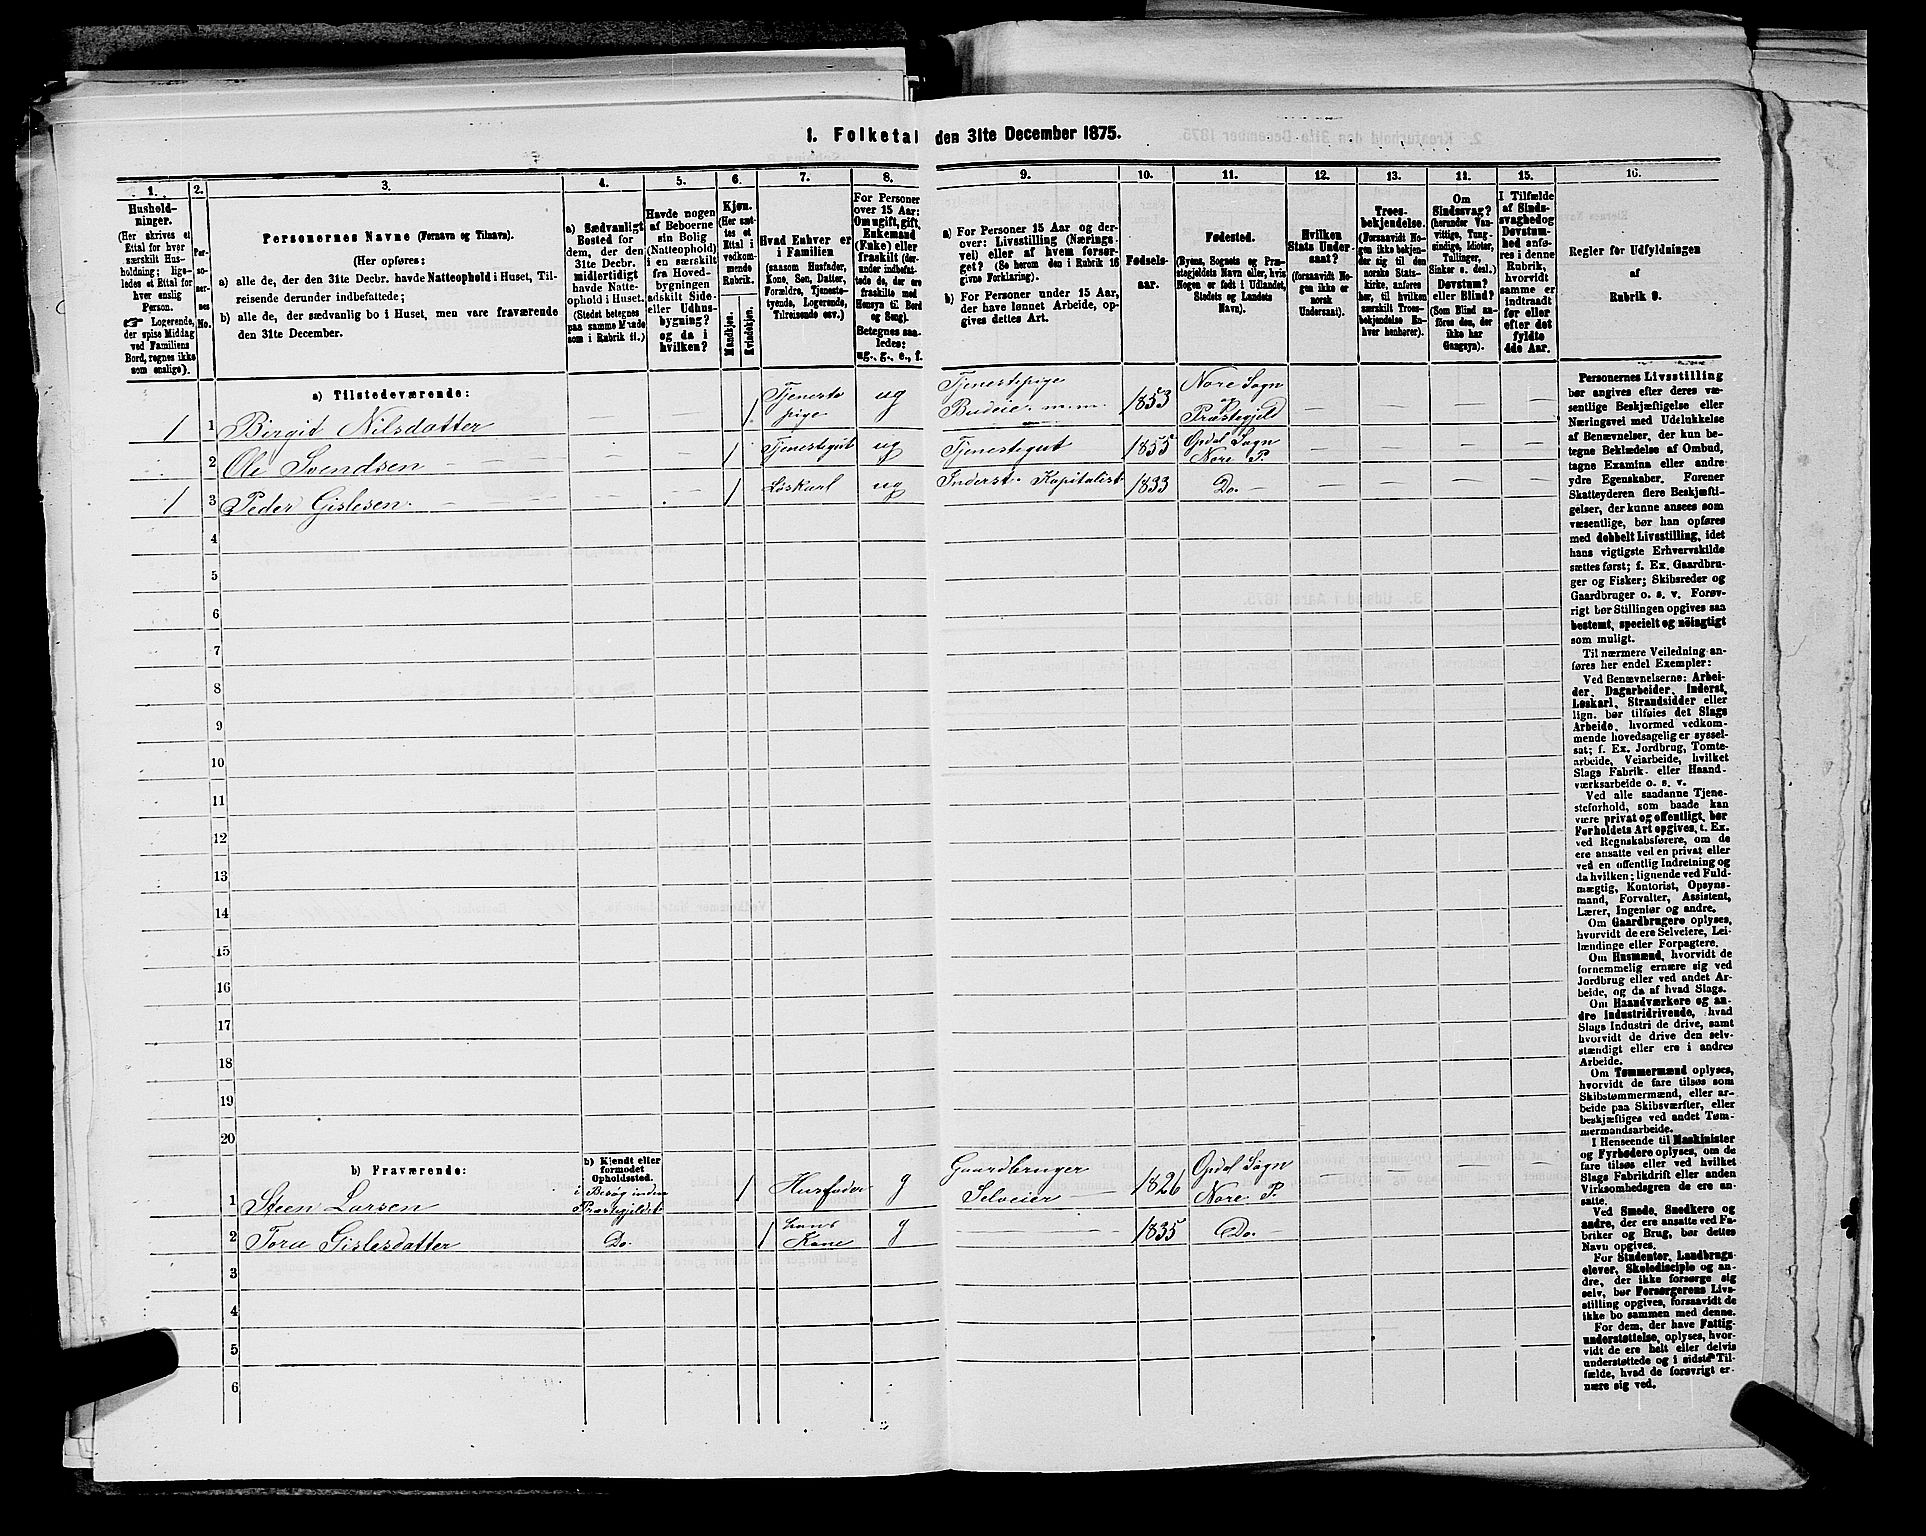 1. Folketal den 31te December 1875.
1. 2. 3. 4. 5. 6. 7. 8. 9. 10. 11. 12. 13. 11. 15. 16.
Hushold-
ninger.
(Her skrives et
Ettal for hver
særskilt Hus-
holdning; lige-
ledes et Ettal for
hver enslig
Person.
☞ Logerende,
der spise Middag
ved Familiens
Bord, regnes ikke
som enslige).
Per-
so-
ner-
nes
No.
Personernes Navne (Fornavn og Tilnavn).
(Her opføres:
a) alle de, der den 31te Decbr. havde Natteophold i Huset, Til-
reisende derunder indbefattede;
b) alle de, der sædvanlig bo i Huset, men vare fraværende
den 31te December.
a) Sædvanligt
Bosted for
dem, der den
31te Decbr.
midlertidigt
havde Natte-
ophold i Huset.
(Stedet betegnes
paa samme Maade
som i Rubrik 11.)
Havde nogen
af Beboerne
sin Bolig
(Natteophold)
i en særskilt
fra Hoved-
bygningen
adskilt Side-
eller Udhus-
bygning?
og da i
hvilken?
Kjøn.
(Her sæt-
tes et
Ettal i
vedkom-
mende
Rubrik.
Mandkjøn.
Kvindekjøn.
Hvad Enhver er
i Familien
(saasom Husfader,
Kone, Søn, Datter,
Forældre, Tjeneste-
tyende, Logerende,
Tilreisende osv.)
For Personer
over 15 Aar:
Om ugift, gift,
Enkemand
(Enke) eller
fraskilt (der-
under indbefat-
tede de, der ere
fraskilte med
Hensyn til Bord
og Seng).
Betegnes saa-
ledes:
ug., g., e., f.
a) For Personer 15 Aar og der-
over: Livsstilling (Nærings-
vei) eller af hvem forsør-
get? (Se herom den i Rubrik 16
givne Forklaring).
b) For Personer under 15 Aar,
der have lønnet Arbeide, op-
gives dettes Art.
Fødsels-
aar.
Fødested.
(Byens, Sognets og Præ-
stegjeldets Navn eller, hvis
Nogen er født i Udlandet,
Stedets og Landets
Navn).
Hvilken
Stats Under-
saat?
(forsaavidt No-
gen ikke er
norsk
Undersaat).
Troes-
bekjendelse.
(Forsaavidt No-
gen ikke bekjen-
der sig til den
norske Stats-
kirke, anføres
her, til hvilken
særskilt Troes-
bekjendelse En-
hver henhører).
Om
Sindssvag?
(herunder Van-
vittige, Tung-
sindige, Idioter,
Tullinger,
Sinker o. desl.)
Døvstum?
eller Blind?
(Som Blind an-
føres den, der
ikke har
Gangsyn).
I Tilfælde
af Sinds-
svaghed og
Døvstum-
hed anfø-
res i denne
Rubrik,
hvorvidt
samme er
indtraadt
før eller
efter det
fyldte
4de Aar.
Regler for Udfyldningen
af
Rubrik 9.
a) Tilstedeværende:
1 1 Birgit Nilsdatter — — — 1 Tjeneste pige ug Tjenestepige Budeie m.m. 1853 Nore Sogn & Præstegjeld — — —
2 Ole Svendsen — — — 1 Tjenestegut ug Tjenestegut 1855 Opdal Sogn Nore P. — — —
1 3 Peder Gislesen. — — — 1 Løskarl ug Inderst. Kapitalist 1833 Do. — — —
4
5
6
7
8
9
10
11
12
13
14
15
16
17
18
19
20
b) Fraværende:
b) Kjendt eller
formodet
Opholdssted.
1 Steen Larsen i Besøg inden Præstegjeldet 1 Husfader g Gaardbruger Selveier — 1826 Opdal Sogn Nore P. — — — —
2 Tora Gislesdatter Do. 1 hans Kone g — 1835 Do.
3
4
5
6
Personernes Livsstilling
bør angives efter deres væ-
sentlige Beskjæftigelse eller
Næringsvei med Udelukkelse
af Benævnelser, der kun be-
tegne Beklædelse af Ombud,
tagne Examina eller andre
ydre Egenskaber. Forener
Skatteyderen flere Beskjæfti-
gelser, der kunne ansees som
væsentlige, bør han opføres
med dobbelt Livsstilling, idet
hans vigtigste Erhvervskilde
sættes først; f. Ex. Gaardbru-
ger og Fisker; Skibsreder og
Gaardbruger o. s. v. Forøv-
rigt bør Stillingen opgives saa
bestemt, specielt og nöiagtigt
som muligt.
Til nærmere Veiledning an-
føres her endel Exempler:
Ved Benævnelserne: Arbei-
der, Dagarbeider, Inderst,
Løskarl, Strandsidder eller
lign. bør tilføies det Slags
Arbeide, hvormed vedkom-
mende hovedsagelig er syssel-
sat; f. Ex. Jordbrug, Tomte-
arbeide, Veiarbeide, hvilket
Slags Fabrik- eller Haand-
værksarbeide o. s. v.
Ved alle saadanne Tjene-
steforhold, som baade kan
være privat og offentligt, bør
Forholdets Art opgives, t. Ex.
ved Regnskabsførere, om de
ere ansatte ved en privat eller
ved en offentlig Indretning og
da hvilken; lignende ved Fuld-
mægtig, Kontorist, Opsyns-
mand, Forvalter, Assistent,
Lærer, Ingeniør og andre.
Om Gaardbrugere oplyses,
hvorvidt de ere Selveiere, Lei-
lændinge eller Forpagtere.
Om Husmænd, hvorvidt de
fornemmelig ernære sig ved
Jordbrug eller ved andet Ar-
beide, og da af hvad Slags.
Om Haandværkere og an-
dre Industridrivende, hvad
Slags Industri de drive, samt
hvorvidt de drive den selv-
stændigt eller ere i andres
Arbeide.
Om Tømmermænd oplyses,
hvorvidt de fare tilsøs som
Skibstømmermænd, eller ar-
beide paa Skibsværfter, eller
beskjæftiges ved andet Tøm-
mermandsarbeide.
I Henseende til Maskinister
og Fyrbødere oplyses, om de
fare tilsøs eller ved hvilket
Slags Fabrikdrift eller anden
Virksomhedsgren de ere an-
satte.
Ved Smede, Snedkere og
andre, der ere ansatte ved Fa-
briker og Brug, bør dettes
Navn opgives.
For Studenter, Landbrugs-
elever, Skoledisciple og an-
dre, der ikke forsørge sig
selv, bør Forsørgerens Livs-
stilling opgives, forsaavidt de
ikke bo sammen med denne.
For dem, der have Fattig-
understøttelse, oplyses, hvor-
vidt de ere helt eller delvis
understøttede og i sidste Til-
fælde, hvad de forøvrigt er-
nære sig ved.